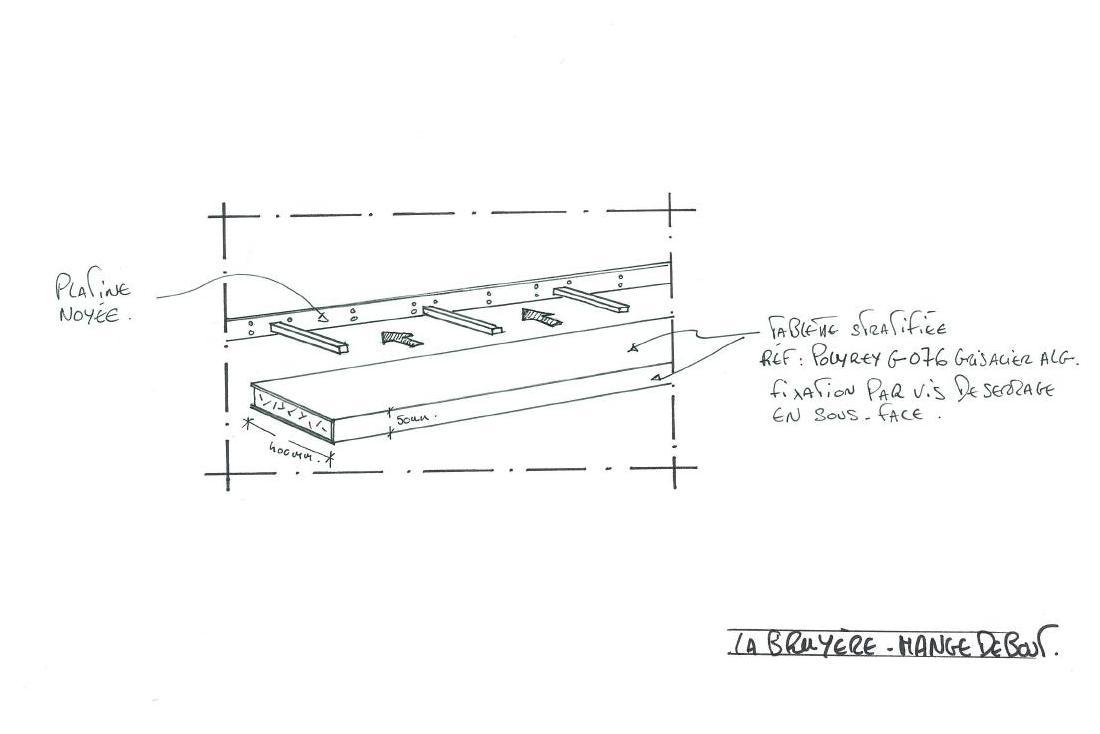 PLATINE
NOYÉE.
TABLETTE STRATIFIÉE
RÉF: POLYREY G-076 GRISACIER ALG.
FIXATION PAR VIS DE SERRAGE
EN SOUS-FACE.
50mm.
400mm.
LA BRUYÈRE - MANGE DEBOUT.